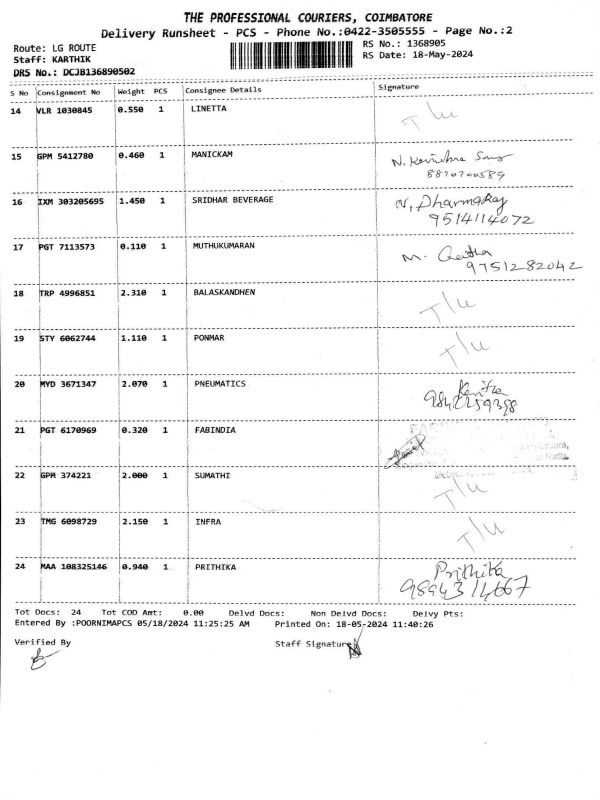 THE PROFESSIONAL COURIERS, COIMBATORE
Delivery Runsheet - PCS - Phone No.:0422-3505555 - Page No.:2
Route: LG ROUTE
RS No.: 1368905
Staff: KARTHIK
RS Date: 18-May-2024
DRS No.: DCJB136890502
S No Consignment No Weight PCS Consignee Details Signature
14 VLR 1030845 0.550 1 LINETTA T/U
15 GPM 5412780 0.460 1 MANICKAM N.
8870700589
16 IXM 303205695 1.450 1 SRIDHAR BEVERAGE N. DharmaRaj
9514114072
17 PGT 7113573 0.110 1 MUTHUKUMARAN M. Geetha
9751282042
18 TRP 4996851 2.310 1 BALASKANDHEN T/U
19 STY 6062744 1.110 1 PONMAR T/U
20 MYD 3671347 2.070 1 PNEUMATICS Kavitha
21 PGT 6170969 0.320 1 FABINDIA
22 GPM 374221 2.000 1 SUMATHI T/U
23 TMG 6098729 2.150 1 INFRA T/U
24 MAA 108325146 0.940 1 PRITHIKA Prithika
9894314667
Tot Docs: 24 Tot COD Amt: 0.00 Delvd Docs: Non Delvd Docs: Delvy Pts:
Entered By :POORNIMAPCS 05/18/2024 11:25:25 AM Printed On: 18-05-2024 11:40:26
Verified By Staff Signature